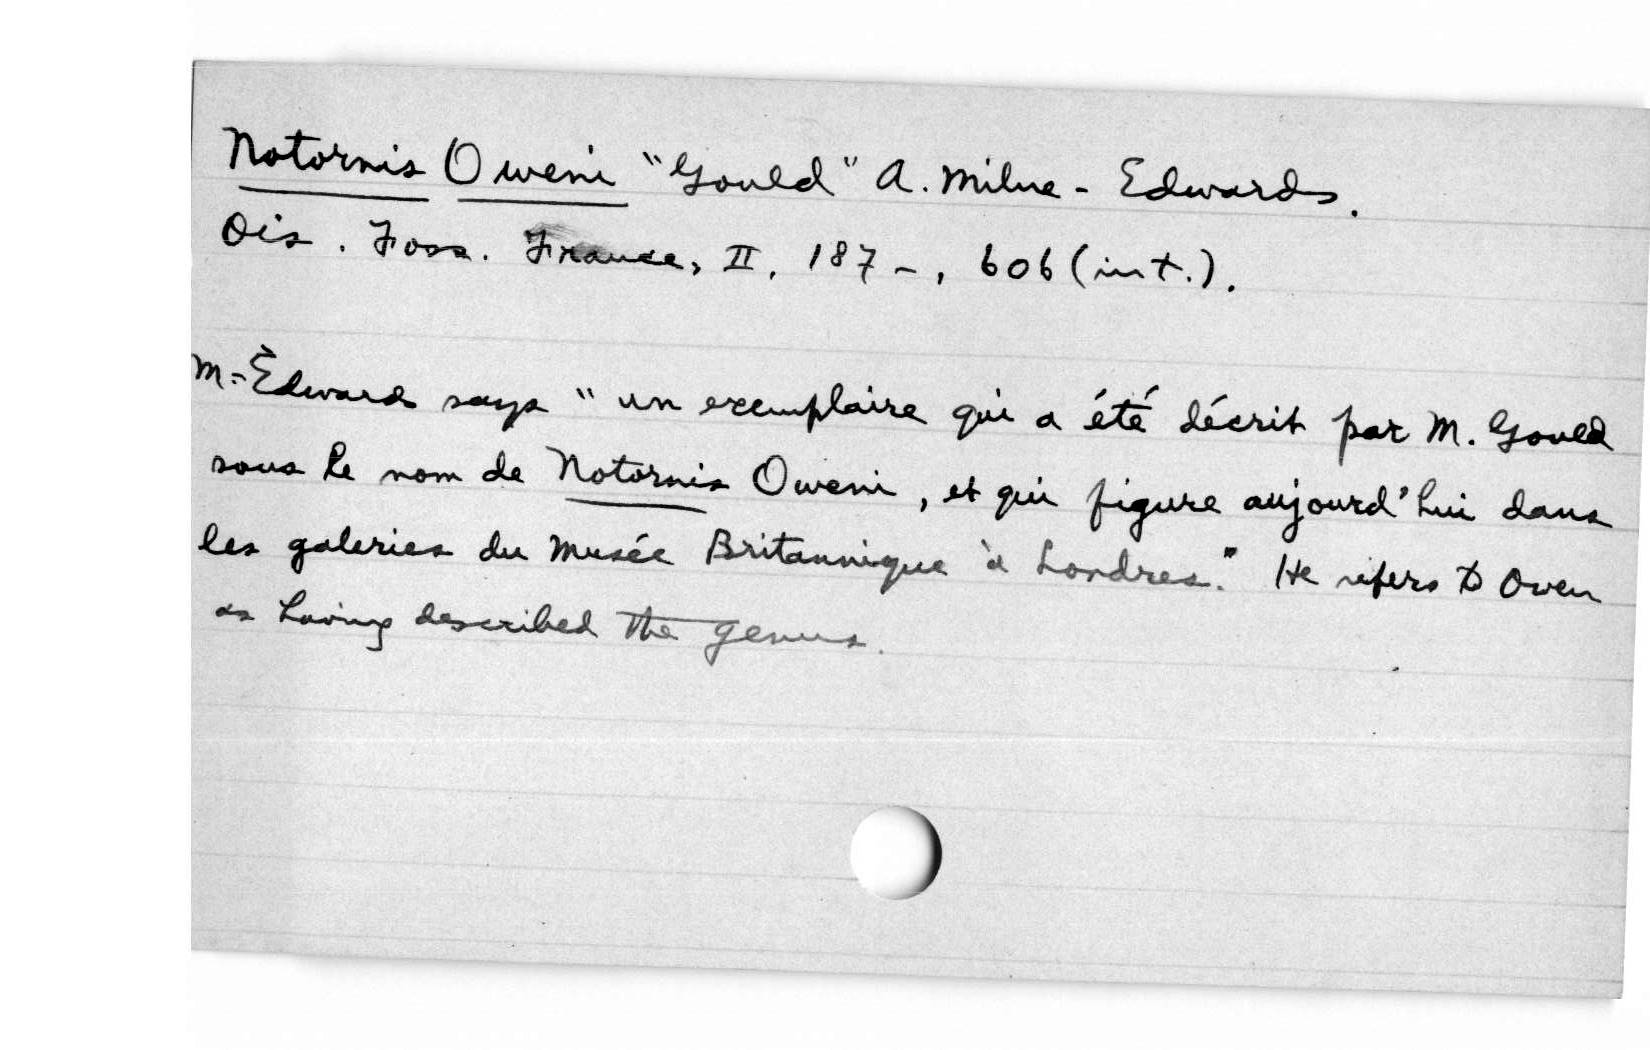 Notornis Oweni "Gould" A. Milne-Edwards.
Ois. Foss. France, II, 187-, 606 (int.).
M.-Edward says "un exemplaire qui a été décrit par M. Gould
sous le nom de Notornis Oweni, et qui figure aujourd'hui dans
les galeries du Musée Britannique à Londres." He refers to Owen
as having described the genus.